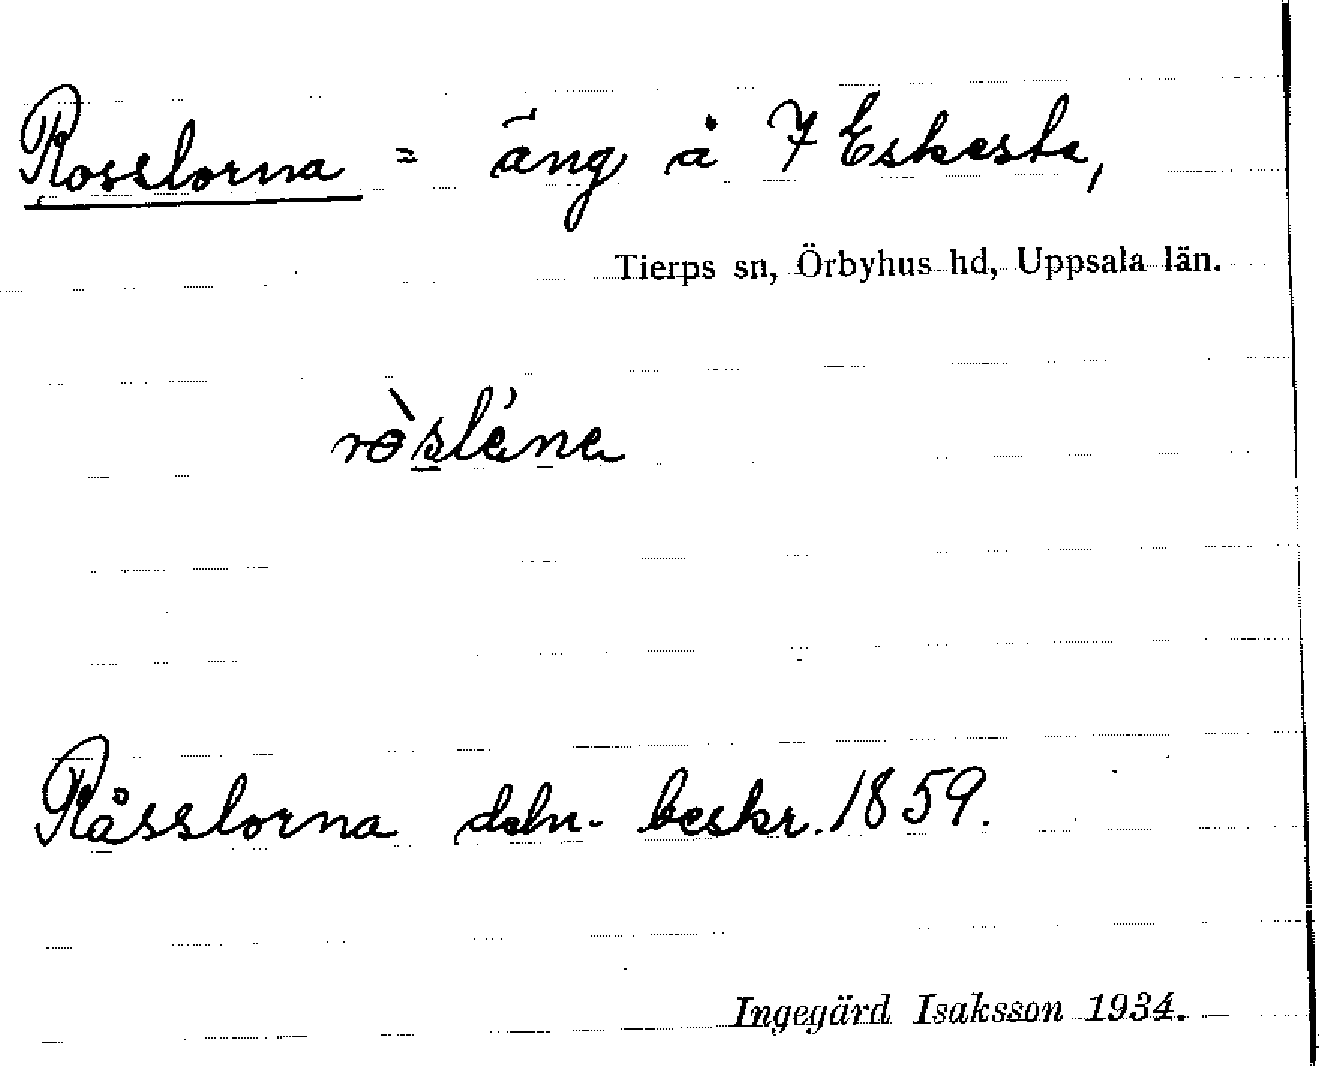 Rosslorna = äng å 7 Eskesta,
Tierps sn, Örbyhus hd, Uppsala län.
Råsslorna deln. beskr. 1859.
Ingegärd Isaksson 1934.